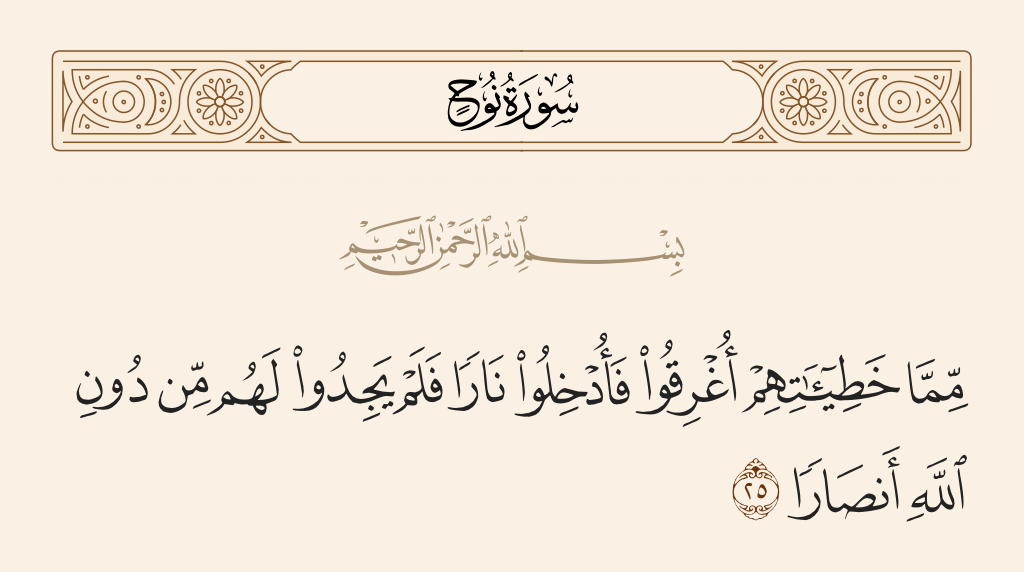 سُورَةُ نُوحٍ
بِسْمِ ٱللَّهِ ٱلرَّحْمَٰنِ ٱلرَّحِيمِ
مِّمَّا خَطِيٓـَٰٔتِهِمْ أُغْرِقُوا۟ فَأُدْخِلُوا۟ نَارًا فَلَمْ يَجِدُوا۟ لَهُم مِّن دُونِ
ٱللَّهِ أَنصَارًا ٢٥